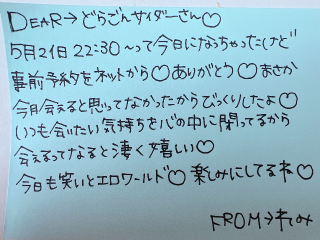 DEAR→どらごんサイダーさん♡
5月21日 22:30〜って今日になっちゃったけど
事前予約をネットから♡ありがとう♡まさか
今月会えると思ってなかったからびっくりしたよ♡
いつも会いたい気持ちを心の中に閉ってるから
会えるってなると凄く嬉しい♡
今日も笑いとエロワールド♡楽しみにしてるね♡
FROM→れみ